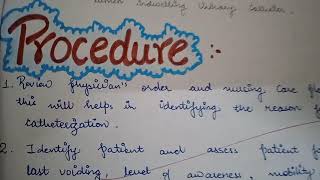 when indwelling Urinary Catheter.
Procedure :-
1. Review physician's order and nursing care
this will helps in identifying the reason
catheterization.
2. Identify patient and assess patient
last voiding, level of awareness, mobility